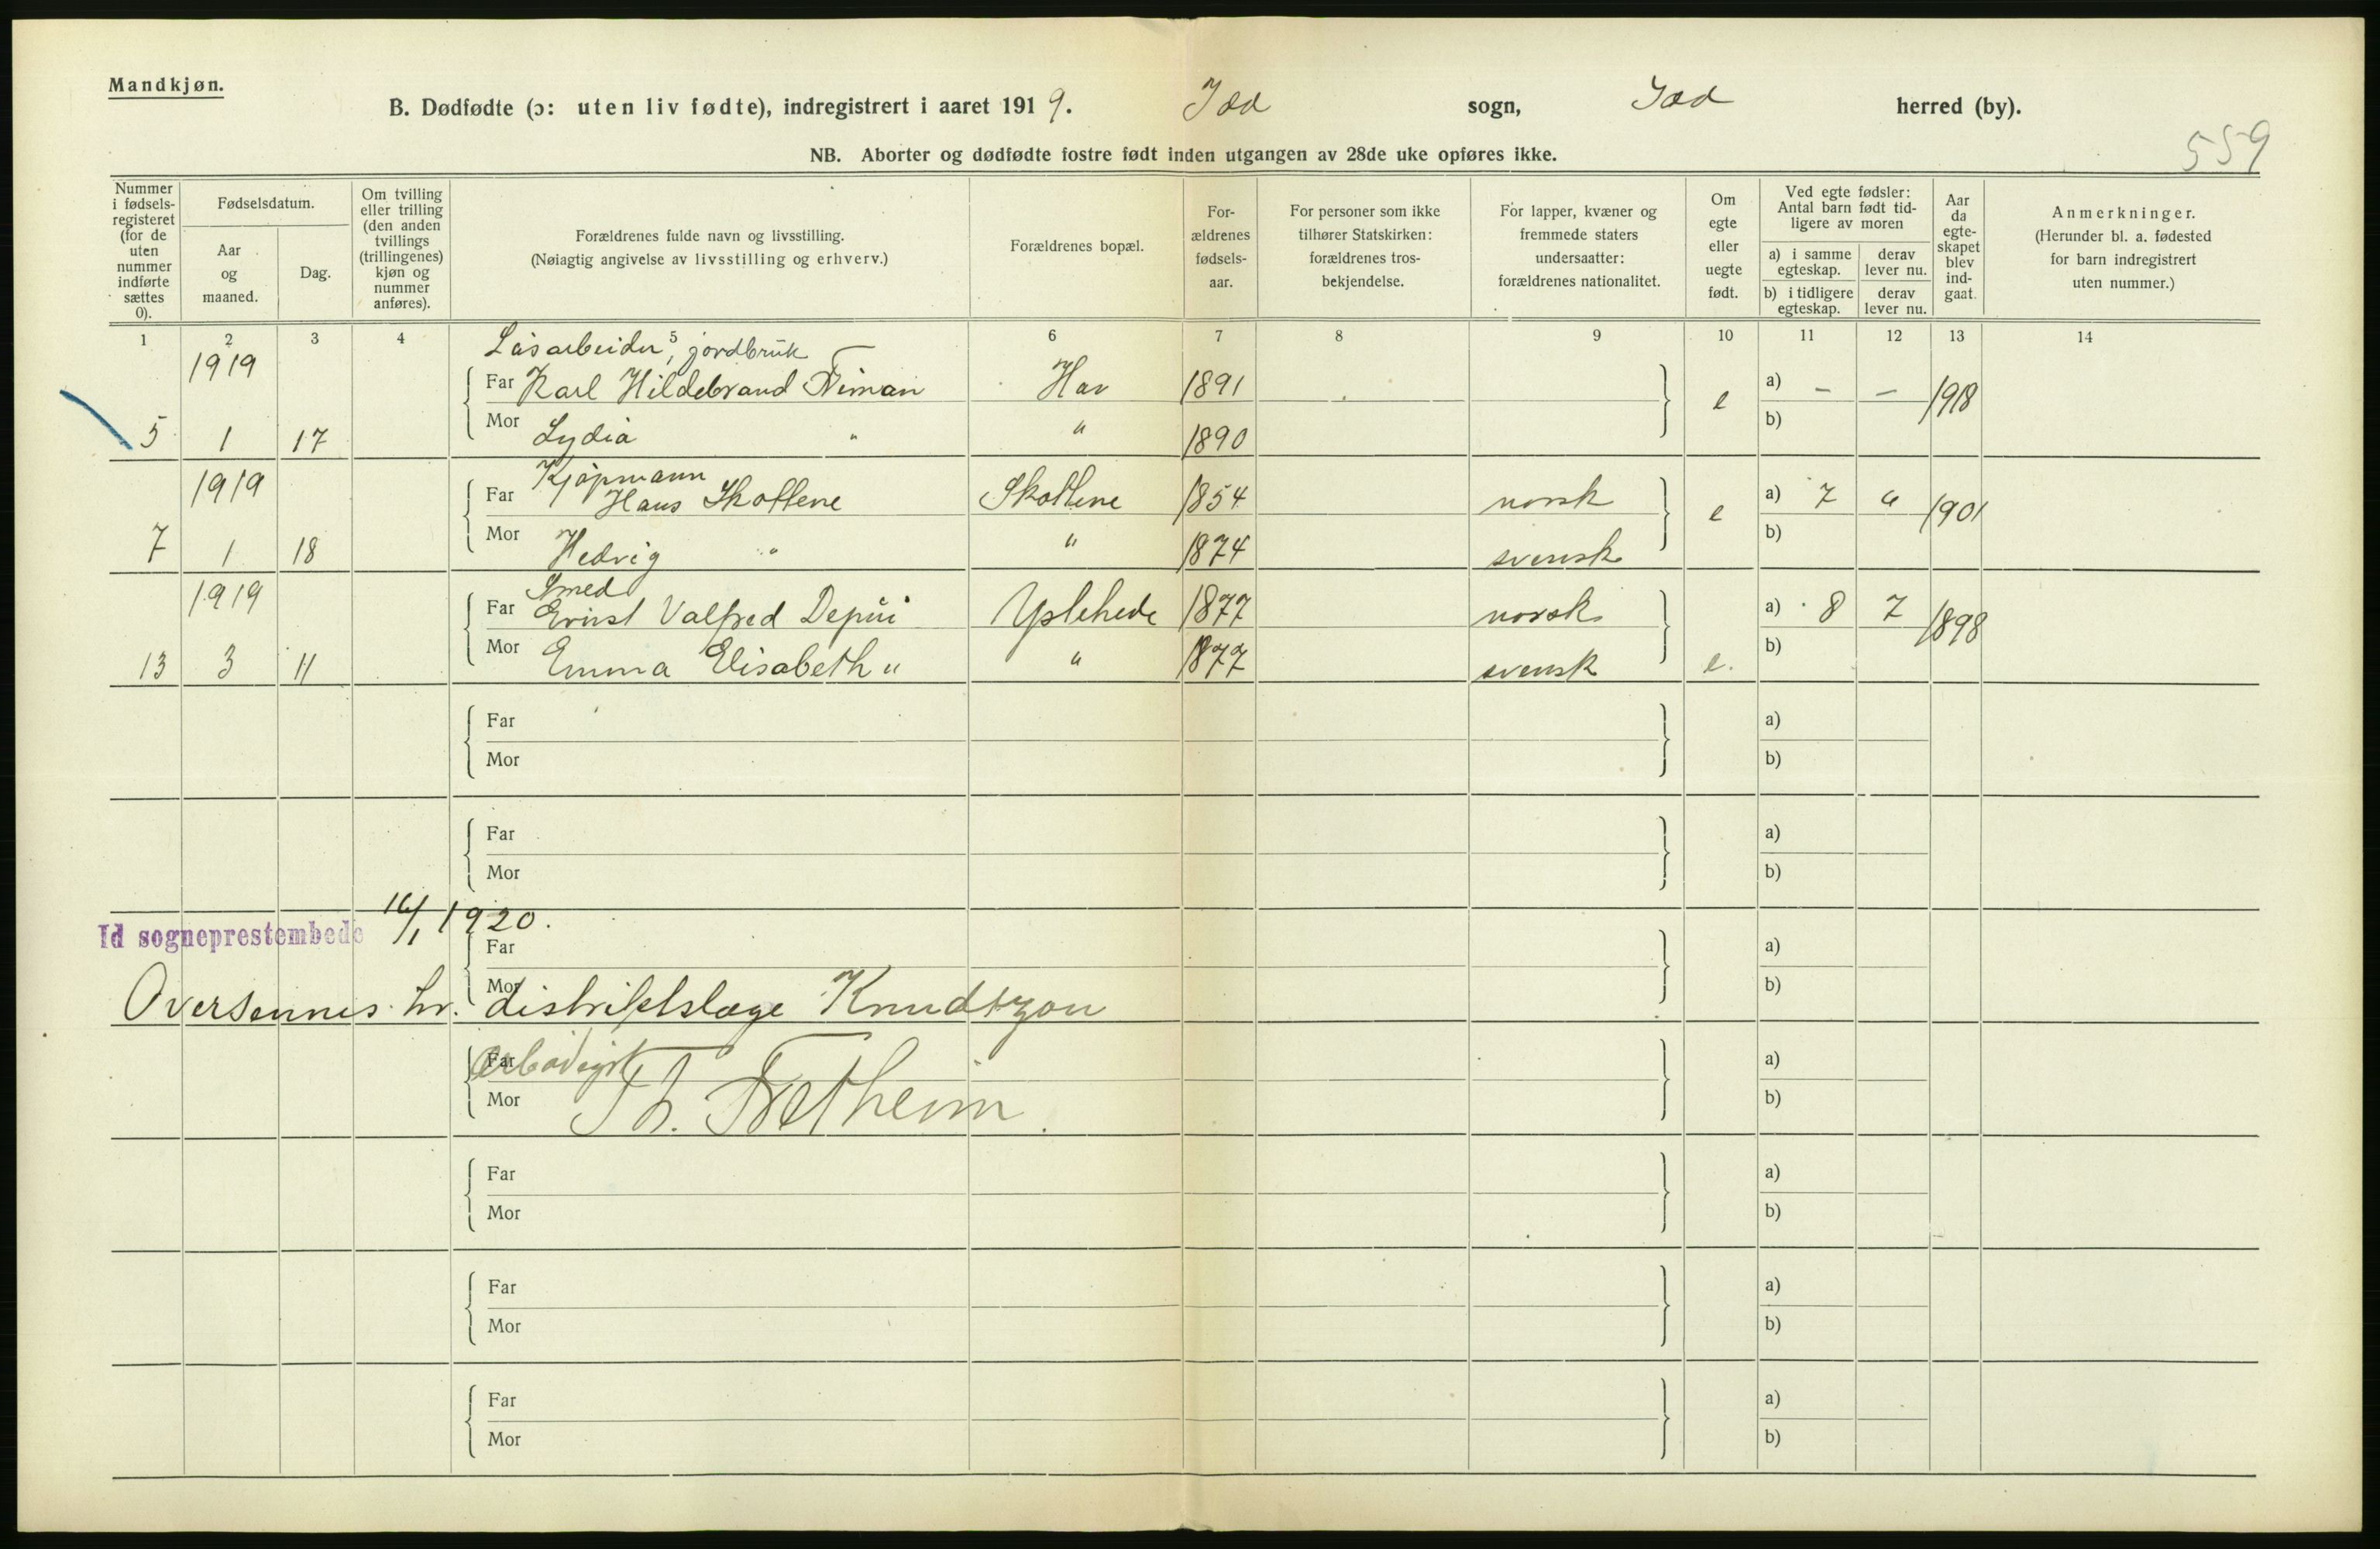 Mandkjøn.
B. Dødfødte (ɔ: uten liv fødte), indregistrert i aaret 1919. Idd sogn, Idd herred (by).
559
NB. Aborter og dødfødte fostre født inden utgangen av 28de uke opføres ikke.
Nummer i fødsels-registeret (for de uten nummer indførte sættes 0).
Fødselsdatum.
Aar og maaned.
Dag.
Om tvilling eller trilling (den anden tvillings (trillingenes) kjøn og nummer anføres).
Forældrenes fulde navn og livsstilling.
(Nøiagtig angivelse av livsstilling og erhverv.)
Forældrenes bopæl.
For-ældrenes fødsels-aar.
For personer som ikke tilhører Statskirken: forældrenes tros-bekjendelse.
For lapper, kvæner og fremmede staters undersaatter: forældrenes nationalitet.
Om egte eller uegte født.
Ved egte fødsler: Antal barn født tid-ligere av moren
a) i samme egteskap. derav lever nu.
b) i tidligere egteskap. derav lever nu.
Aar da egte-skapet blev ind-gaat.
Anmerkninger.
(Herunder bl. a. fødested for barn indregistrert uten nummer.)
1 2 3 4 5 6 7 8 9 10 11 12 13 14
Løsarbeider, jordbruk
1919 Far Karl Hildebrand Hav 1891 e a) – – 1918
5 1 17 Mor Lydia " " 1890 b)
Kjøpmann
1919 Far Hans Skottene Skottene 1854 norsk e a) 7 " 1901
7 1 18 Mor Hedvig " " 1874 svensk b)
Smed
1919 Far Ernst Valfred Depui 1877 norsk a) 8 7 1898
13 3 11 Mor Emma Elisabeth " " 1877 svensk e. b)
Far a)
Mor b)
Far a)
Mor b)
Id sogneprestembede 16/1 1920.
Far a)
Mor b)
Oversennes hr. distriktslæge Knudtzon
Far Ærbødigst a)
Mor Th. Fretheim. b)
Far a)
Mor b)
Far a)
Mor b)
Far a)
Mor b)